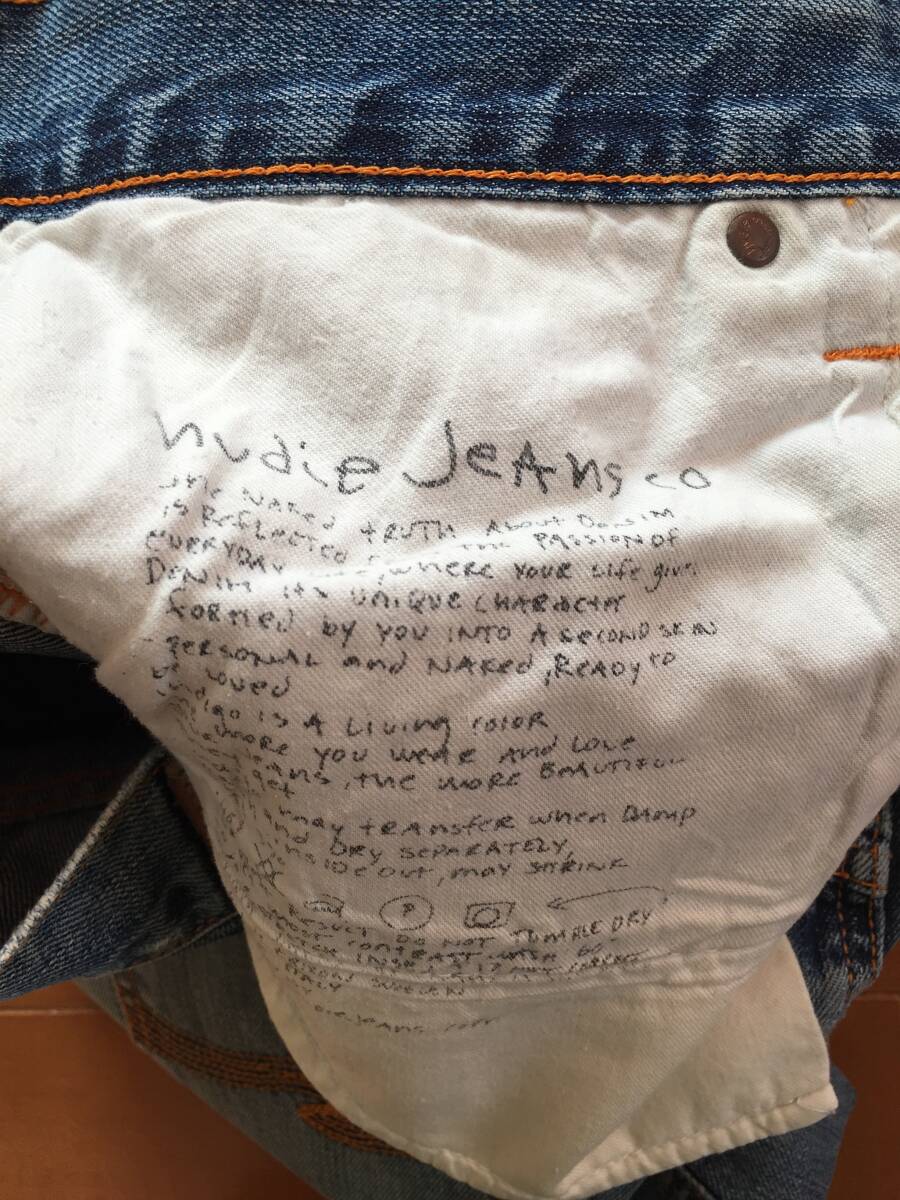 nudie Jeans co
the Naked truth About Denim
is Reflected the PASSION OF
everyday where your life gives
Denim its unique character
formed by you into a second skin
personal and naked, Ready to
loved
indigo is A living color
more you wear and love
Jeans, the more Beautiful
get
may transfer when Damp
and DRY SEPARATELY,
inside out, may shrink
P
Result Do not tumble DRY
wash 60
Sweden
Italy